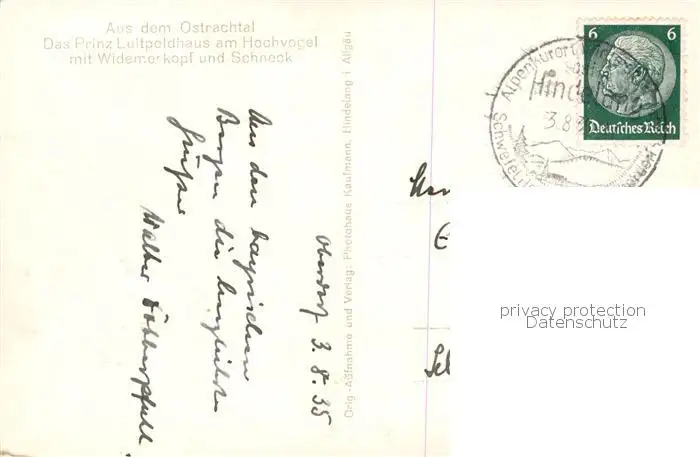 Aus dem Ostrachtal
Das Prinz Luitpoldhaus am Hochvogel
mit Widemerkopf und Schneck
Oberdorf 3.8.35
Aus den bayrischen
Bergen die herzlichsten
Grüße
Walther
Orig.-Aufnahme und Verlag: Photohaus Kaufmann, Hindelang i. Allgäu
6 6
Deutsches Reich
Alpenkurort
Hindelang
3.8.
Schwefel
privacy protection
Datenschutz